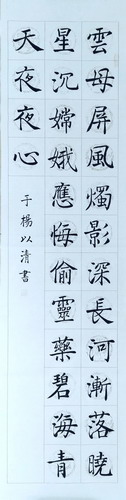 雲母屏風燭影深長河漸落曉
星沉嫦娥應悔偷靈藥碧海青
天夜夜心
于楊以清書